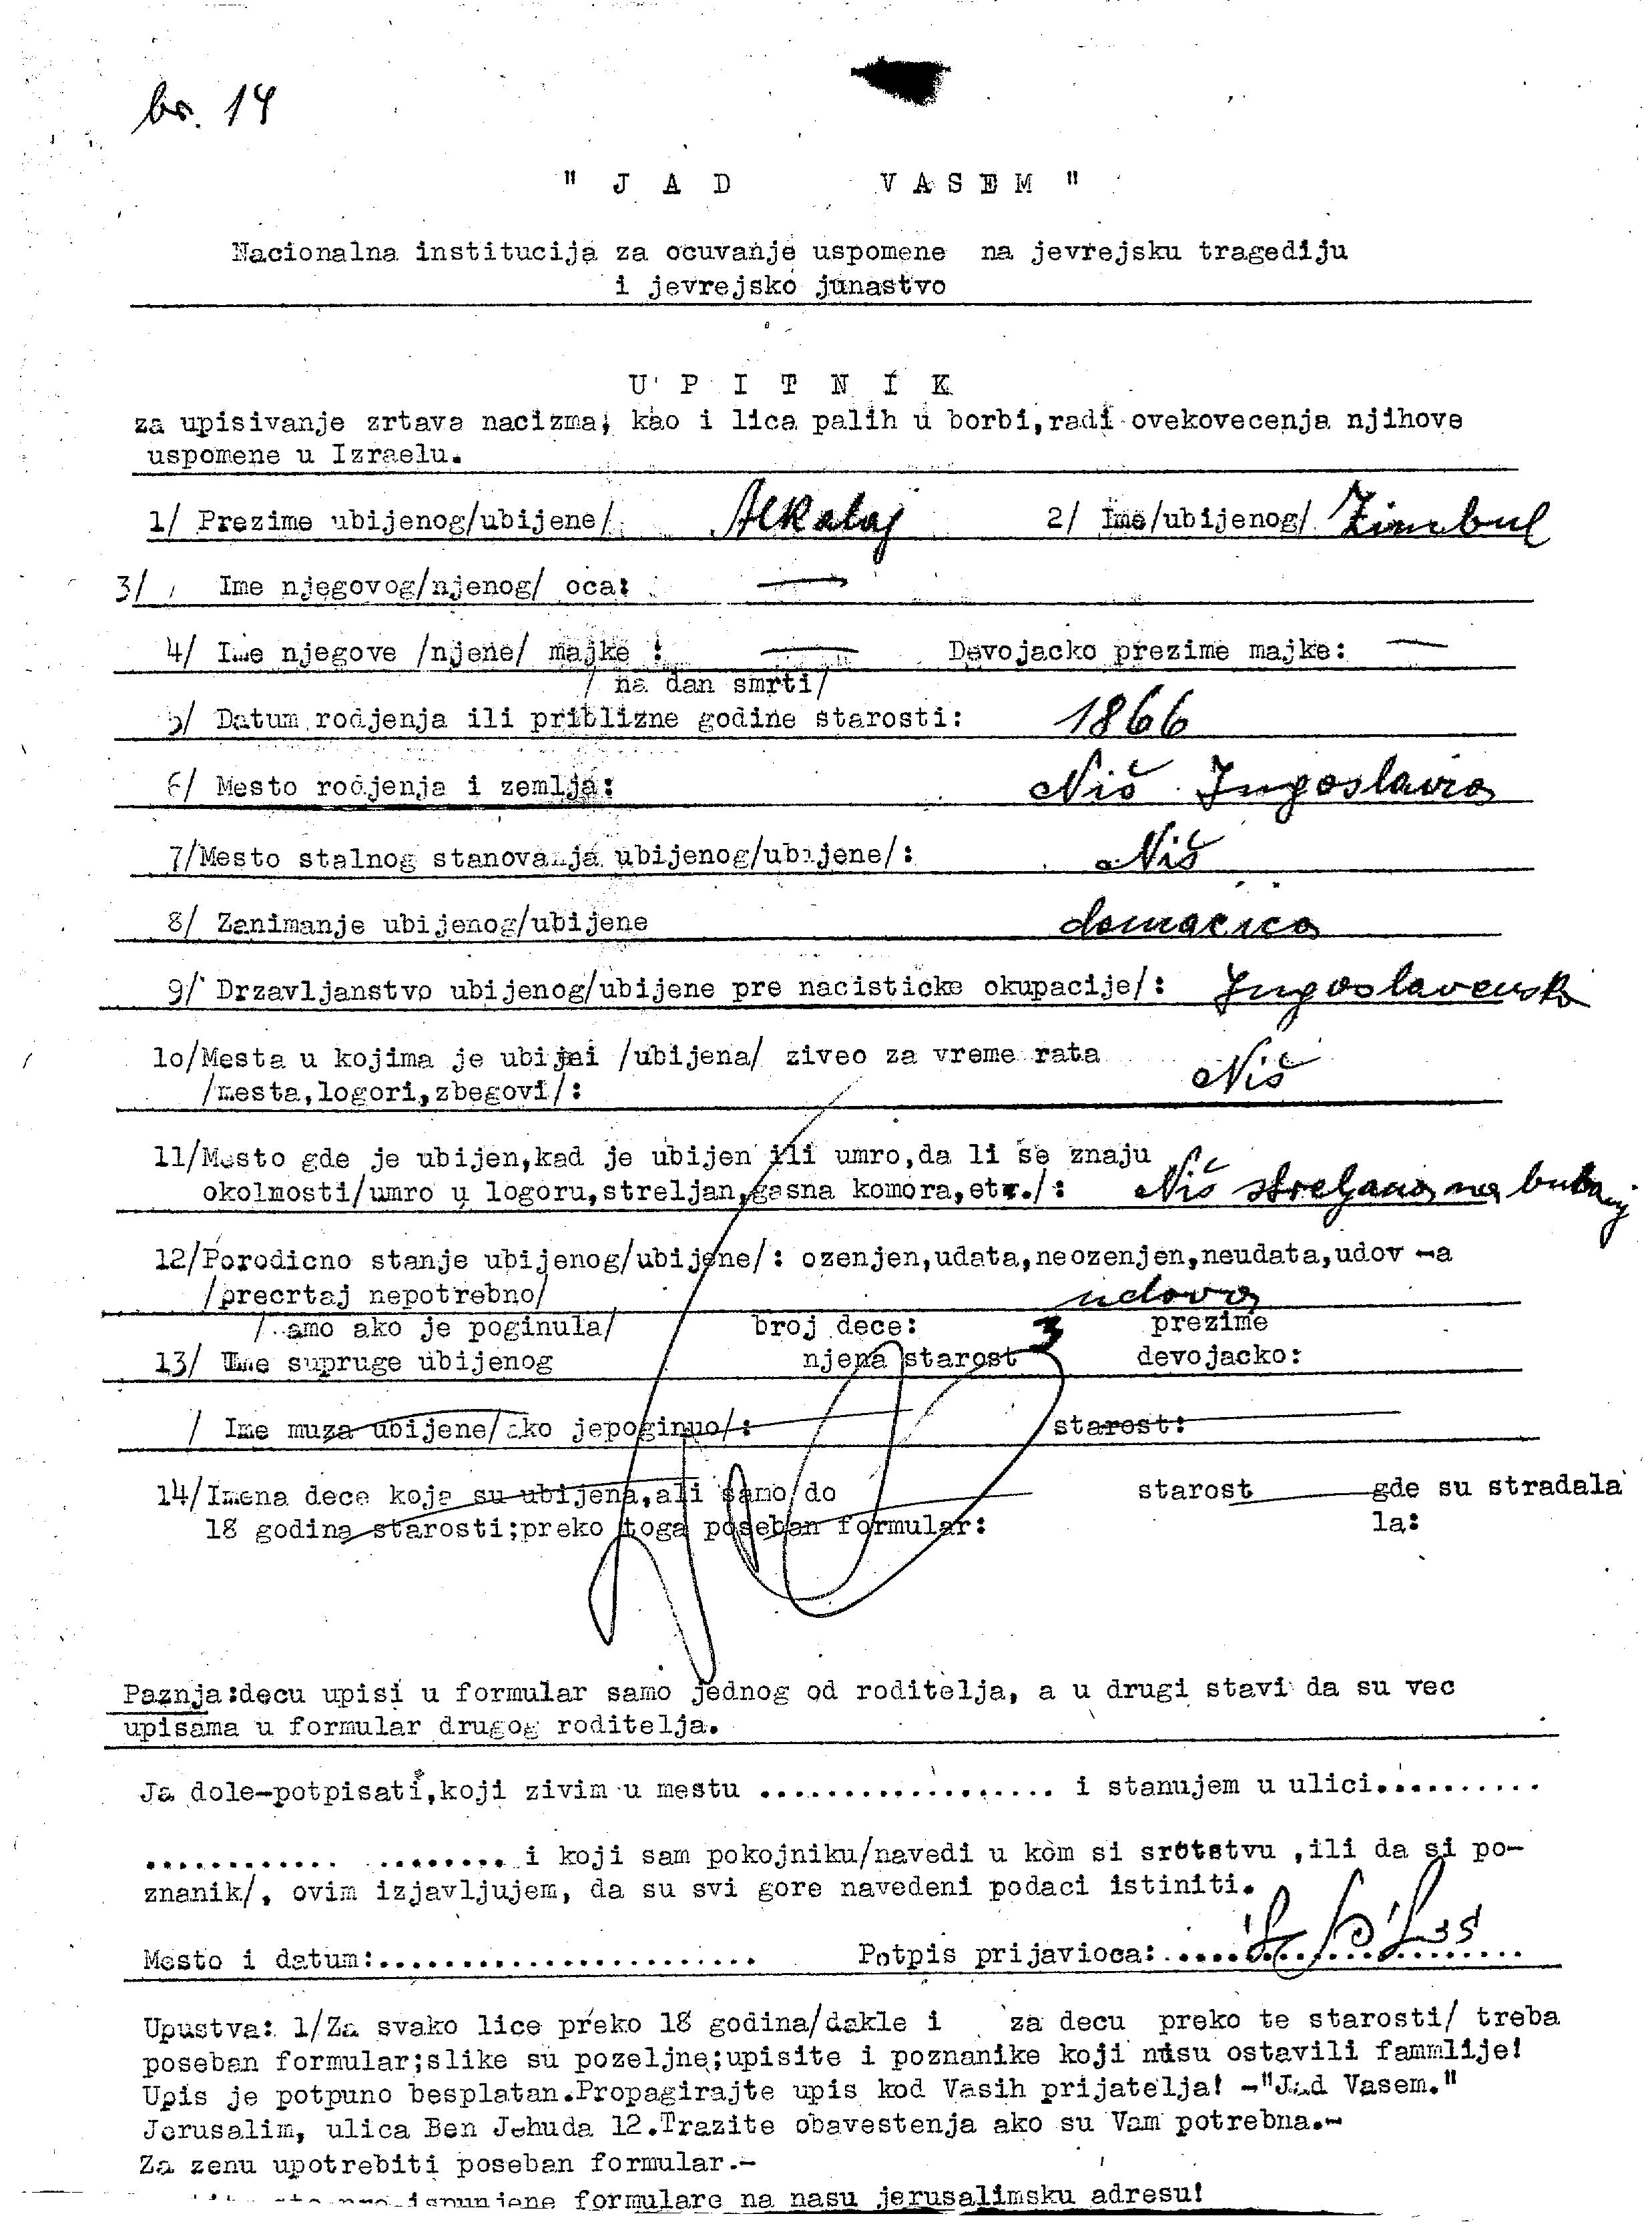 br. 14
" J A D VASEM "
Nacionalna institucija za ocuvanje uspomene na jevrejsku tragediju
i jevrejsko junastvo
U P I T N I K
za upisivanje zrtava nacizma, kao i lica palih u borbi,radi ovekovecenja njihove
uspomene u Izraelu.
1/ Prezime ubijenog/ubijene/: Alkalaj 2/ Ime/ubijenog/ Zimbul
3/ Ime njegovog/njenog/ oca: —
4/ Ime njegove /njene/ majke : — Devojacko prezime majke: —
/ na dan smrti/
5/ Datum rodjenja ili priblizne godine starosti: 1866
6/ Mesto rodjenja i zemlja: Niš Jugoslavia
7/Mesto stalnog stanovanja ubijenog/ubijene/: Niš
8/ Zanimanje ubijenog/ubijene domacica
9/ Drzavljanstvo ubijenog/ubijene pre nacisticke okupacije/: Jugoslavensko
10/Mesta u kojima je ubijeni /ubijena/ ziveo za vreme rata
/mesta,logori,zbegovi/: Niš
11/Mesto gde je ubijen,kad je ubijen ili umro,da li se znaju
okolnosti/umro u logoru,streljan,gasna komora,etc./: Niš streljana na bubanj
12/Porodicno stanje ubijenog/ubijene/: ozenjen,udata,neozenjen,neudata,udov -a
/precrtaj nepotrebno/ udova
/samo ako je poginula/ broj dece: 3 prezime
13/ Ime supruge ubijenog njena starost devojacko:
/ Ime muza ubijene/ako jepoginuo/: starost:
14/Imena dece koja su ubijena,ali samo do starost gde su stradala
18 godina starosti;preko toga poseban formular: la:
Paznja:decu upisi u formular samo jednog od roditelja, a u drugi stavi da su vec
upisama u formular drugog roditelja.
Ja dole-potpisati,koji zivim u mestu .................. i stanujem u ulici...........
............ ........ i koji sam pokojniku/navedi u kom si srotstvu ,ili da si po-
znanik/, ovim izjavljujem, da su svi gore navedeni podaci istiniti.
Mesto i datum:....................... Potpis prijavioca: .....................
Upustva: 1/Za svako lice preko 18 godina/dakle i za decu preko te starosti/ treba
poseban formular;slike su pozeljne;upisite i poznanike koji nisu ostavili fammlije!
Upis je potpuno besplatan.Propagirajte upis kod Vasih prijatelja! -"Jad Vasem."
Jerusalim, ulica Ben Jehuda 12.Trazite obavestenja ako su Vam potrebna.-
Za zenu upotrebiti poseban formular.-
ispunjene formulare na nasu jerusalimsku adresu!